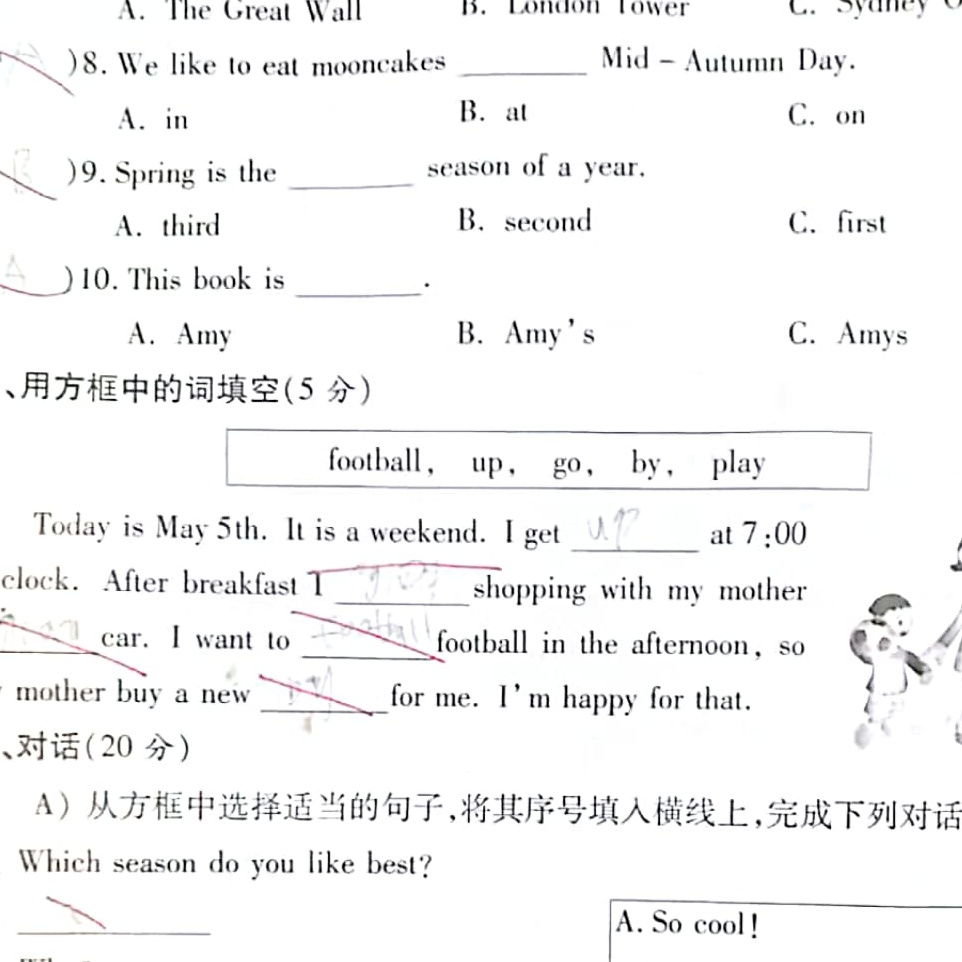 A. The Great Wall B. London Tower C. Sydney
)8. We like to eat mooncakes ______ Mid - Autumn Day.
A. in B. at C. on
)9. Spring is the ______ season of a year.
A. third B. second C. first
A )10. This book is ______.
A. Amy B. Amy's C. Amys
、用方框中的词填空(5 分)
football, up, go, by, play
Today is May 5th. It is a weekend. I get up at 7:00
clock. After breakfast I ______ shopping with my mother
______ car. I want to football football in the afternoon, so
mother buy a new ______ for me. I'm happy for that.
、对话(20 分)
A) 从方框中选择适当的句子,将其序号填入横线上,完成下列对话
Which season do you like best?
A. So cool!